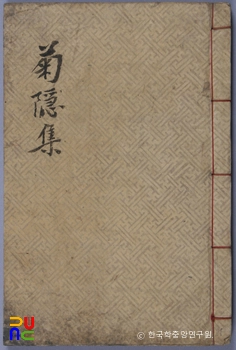 菊隱集
© 한국학중앙연구원